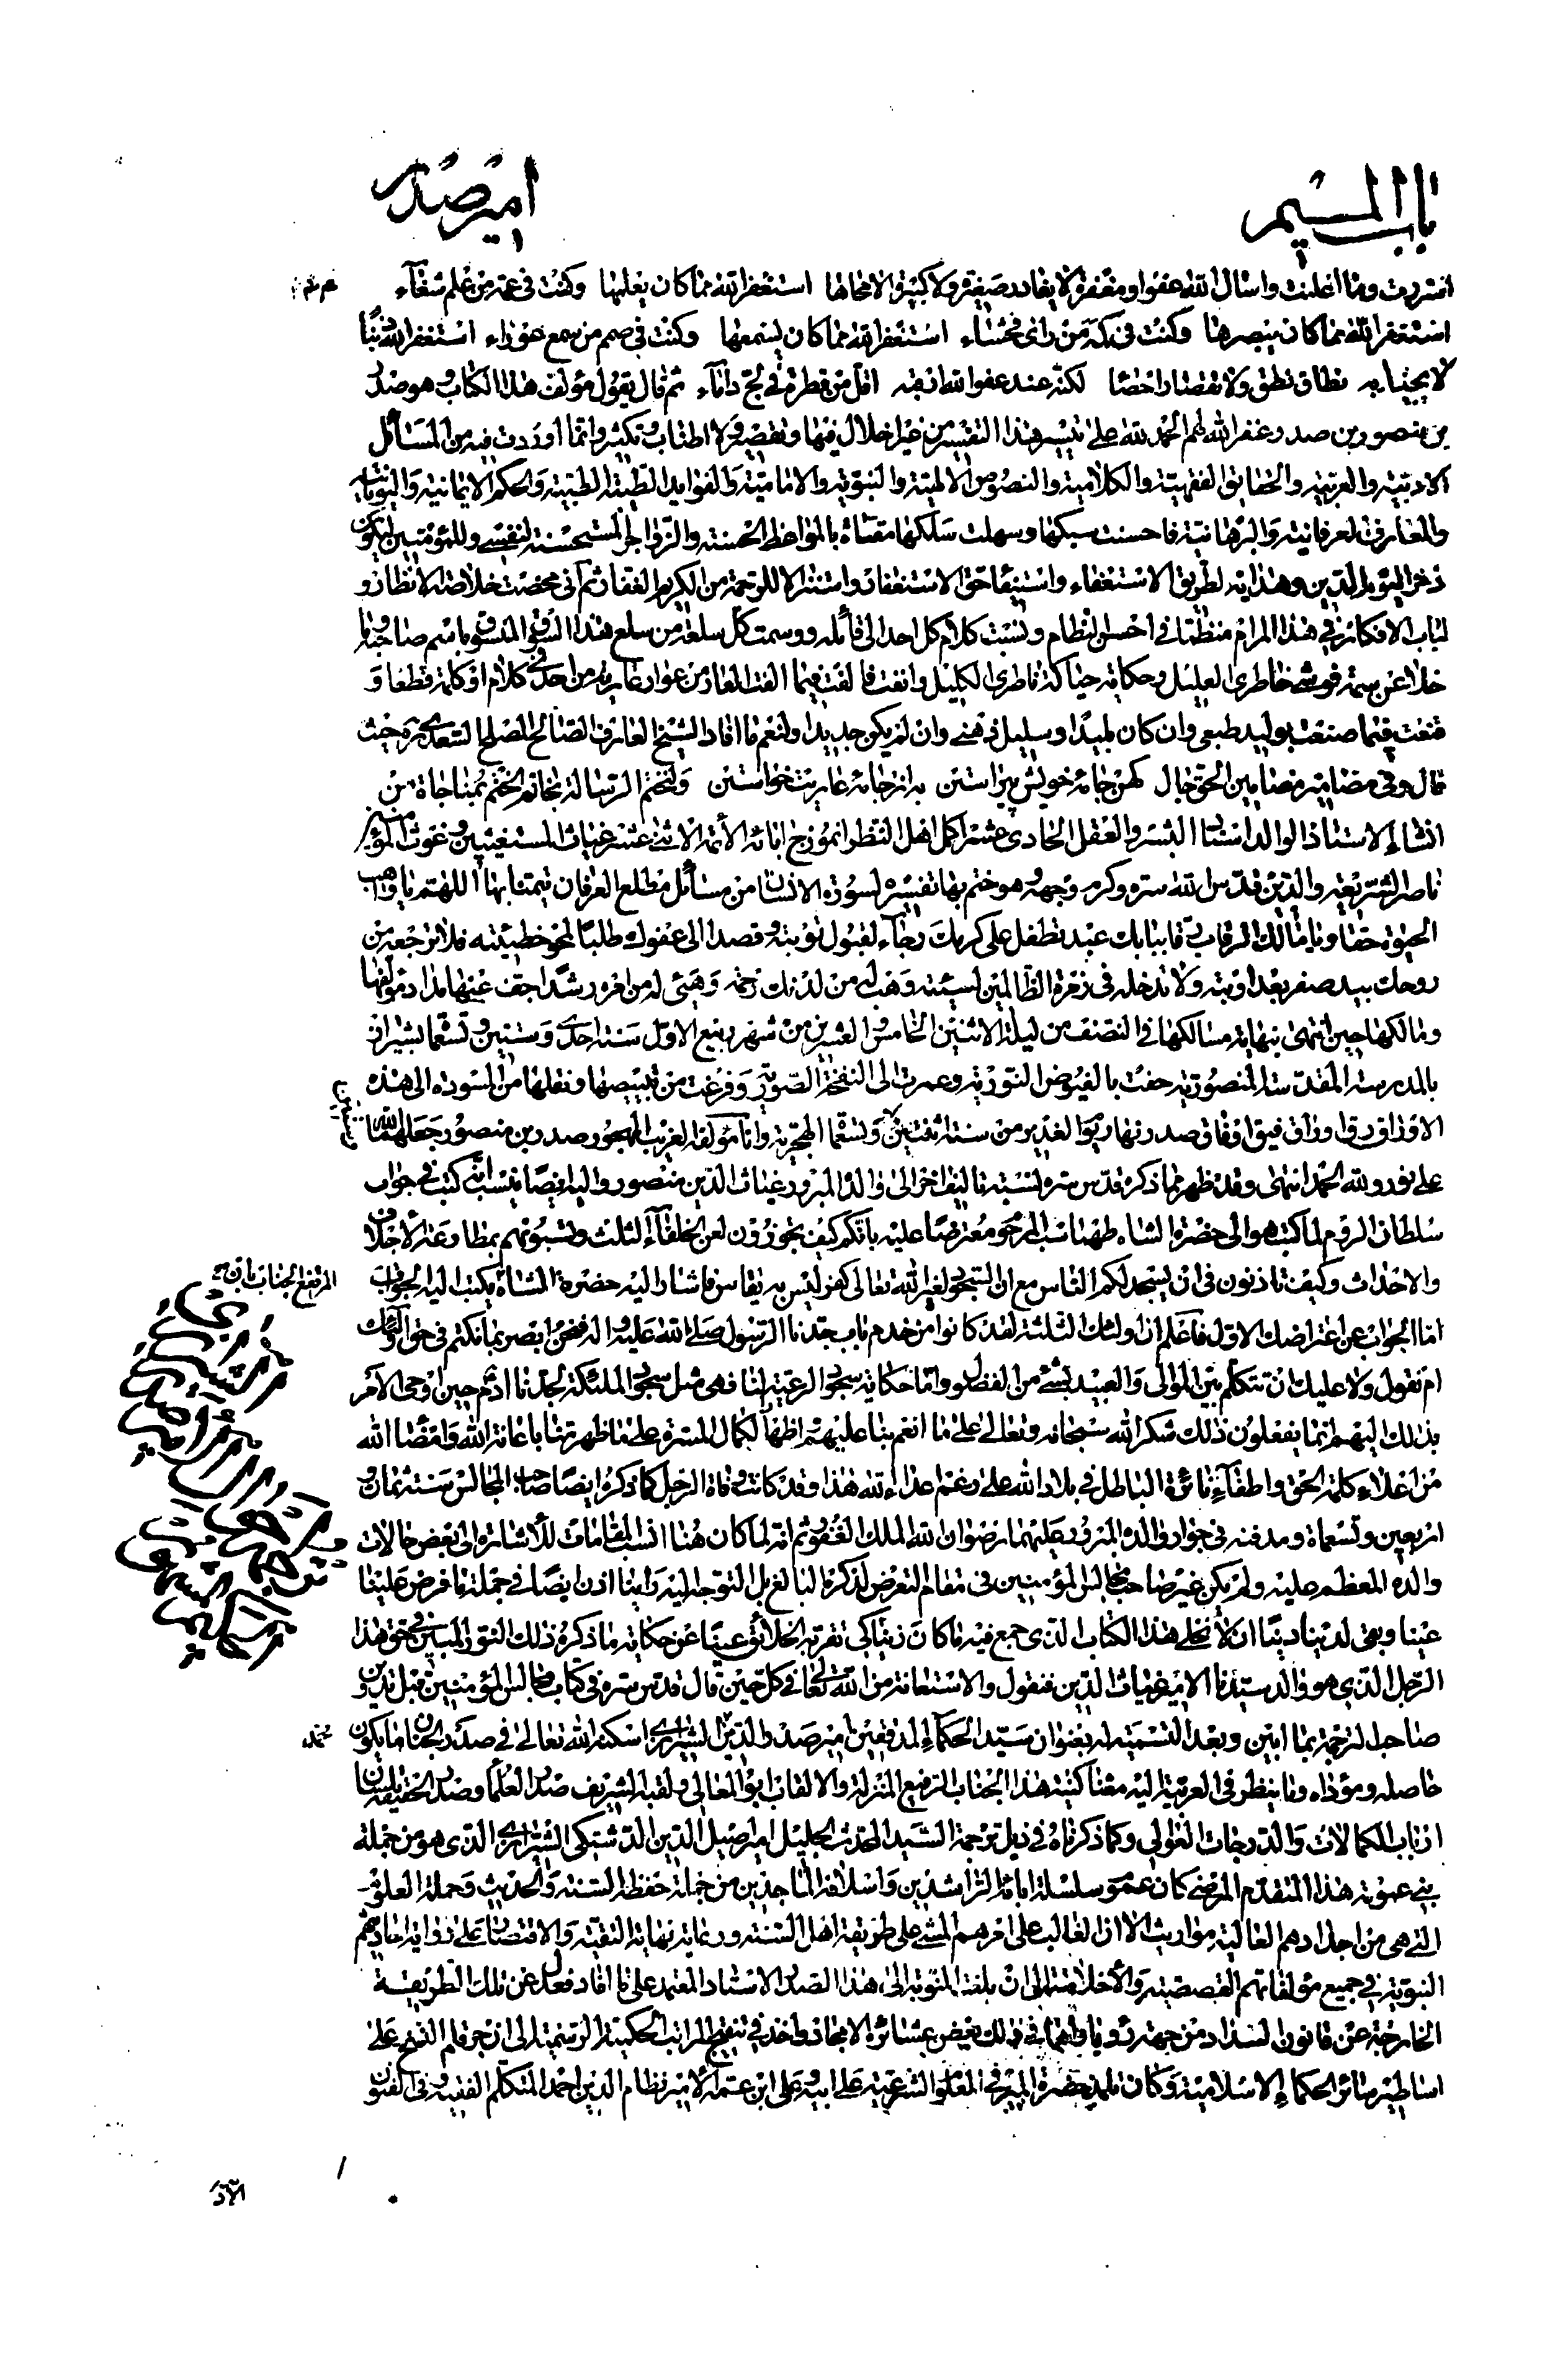 باب الميم
امير صدر
اسررت وما اعلنت واسال الله عفوا ومغفرة لا يغادر صغيرة ولا كبيرة الا محاها استغفر الله مما كان يعلمها وكنت في عمه من علم شغآء
استغفر الله مما كان يبصرها وكنت في كمه من راى فحشاء استغفر الله مما كان يسمعها وكنت في صمم من سمع عوراء استغفر الله ذنبا
لا يحيط به نطاق نطق ولا نقصار احصا لكنه عند عفو الله انقبه اقل من قطرة في لج داماء ثم قال يقول مؤلف هذا الكتاب وهو صدر
بن منصور بن صدر غفر الله لهم الحمد لله على تيسير هذا التفسير من غير اخلال فيها وتقصير ولا اطناب وتكثير وانما اوردت فيه من المسائل
الادبية والعربية والحقايق الفقهية والكلامية والنصوص الالهية والنبوية والامامية والفوايد الطبية والحكم الايمانية
والمعارف العرفانية والبرهانية فاحسنت سبكها وسهلت سلكها مقفاة بالمواعظ الحسنة والزواجر المستحسنة لنفسي وللمؤمنين ليكون
ذخرا ليوم الدين وهداية لطريق الاستغفاء واستيفا حق الاستغفار واستنزالا للرحمة من الكريم الغفار ثم اني محضت خلاصة الانظار و
لباب الافكار في هذا المرام منظما في احسن انتظام ونسبت كلام كل احد الى قائله ووسمت كل سلعة من سلع هذا السوق المنسوق باسم صاحبها وما
خلا عن سمة فوشي خاطري العليل وحكاية حياكة ناظري الكليل وانفت فما لفت فيما الفت العار من عوار عارية من احد في كلام او كلمة قط فما و
قنعت فيما صنعت بوليد طبعي وان كان بليدا وسليل ذهني وان لم يكن جديدا ولنعم ما افاد الشيخ العارف الصالح المصلح السعدي حيث
قال وفي مضامير مضامين الحق جال كهن جامهٔ خويش پيراستن به از جامهٔ عاريت خواستن ولنختم الرسالة بخاتم الختم بمناجاة من
انشاء الاستاذ الوالد استاد البشر والعقل الحادي عشر اكمل اهل النظر انموذج ابائه الائمة الاثنى عشر غياث المستغيثين وغوث
ناصر الشريعة والدين قدس الله سره وكرم وجهه وهو ختم بها تفسيره لسورة الانسان من مسائل مطلع العرفان تيمنا بها اللهم يا واهب
الحيوة حقا ويا مالك الرقاب رقا ببابك عبد تطفل على كرمك رجاء لقبول توبته وقصد الى عفوك طلبا لمحو خطيئته فلا ترجعه من
روحك بيد صفر بعد اوبته ولا تدخله في زمرة الظالمين لسيئته وهب له من لدنك رحمة وهيئ له من امره رشدا جف عنها مداد مؤلفها
ومالكها حين انتهى نهاية مسالكها في النصف من ليلة الاثنين الخامس والعشرين من شهر ربيع الاول سنة احدى وستين وتسعمائة بشيراز
بالمدرسة المقدسة المنصورية حفت بالفيوض النورية وعمرت الى النفخة الصورية وفرغت من تبييضها ونقلها من المسودة الى هذه
الاوراق رق اوراق فيق افاق صدر نهار يوم الغدير من سنة اثنتين وتسعمائة الهجرية وانا مؤلفه الغريب المهجور صدر بن منصور جعلهما الله
على نور ولله الحمد انتهى وقد ظهر مما ذكره قدس سره نسبة تاليف اخر الى والد المبرور غياث الدين منصور واليه ايضا ينسب انه كتب في جواب
سلطان الروم لما كتب هو الى حضرة الشاه طهماسب المرحوم معترضا عليه بانكم كيف تجوزون لعن الخلفاء الثلث وتسبونهم بمطاوعة الاخلاف
والاحداث وكيف تاذنون في ان يسجد لكم الناس مع ان السجود لغير الله تعالى كفر ليس به يقاس فاشار اليه حضرة الشاه بان يكتب اليه الجواب
اما الجواب عن اعتراضك الاول فاعلم ان اولئك الثلثة لقد كانوا من خدم باب جدنا الرسول صلى الله عليه واله فنحن ابصر بما نكتم في حق اولئك
ام نقول ولا عليك ان تتكلم بين الموالي والعبيد بشئ من الفضول واما حكاية سجود الرعية لنا فهي مثل سجود الملئكة لجدنا ادم حين اوحى الامر
بذلك اليهم انما يفعلون ذلك شكر الله سبحانه وتعالى على ما انعم بنا عليهم اظهارا لكمال المسرة على ما ظهر منا باعانة الله وامضاء الله
من اعلاء كلمة الحق واطفاء نائرة الباطل في بلاد الله على رغم اعداء الله هذا وقد كانت وفاة الرجل كما ذكره ايضا صاحب المجالس سنة ثمان و
اربعين وتسعمائة ومدفنه في جوار والده المبرور عليهما رضوان الله الملك الغفور ثم انه لما كان هنا انسب المقامات للاشارة الى بعض حالات
والده المعظم عليه ولم يكن غير صاحب مجالس المؤمنين في مقام التعرض لذكره البالغ بل التوجه اليه راينا اذن ايضا في جملة ما فرض علينا
عينا وبقى لدينا دينا ان لا نخلي هذا الكتاب الذي جمع فيه ما كان زينا كي تقر به الخلائق عينا عن حكاية ما ذكره ذلك النور المبين في حق هذا
الرجل الذي هو والد سيدنا الامير غياث الدين فنقول والاستعانة من الله تعالى في كل حين قال قدس سره في كتاب مجالس المؤمنين قبل تدوين
صاحب الترجمة بما ابين وبعد التسمية له بعنوان سيد الحكماء المدققين امير صدر الدين الشيرازي اسكنه الله تعالى في صدر الجنان ما يكون
حاصله ومؤداه وما ينظر في العربية اليه معناه كنية هذا الجناب الرفيع المنزلة والالقاب ابو المعالي ولقبه الشريف صدر العلماء وصدر الحقيقة بلسان
ارباب الكمالات والدرجات العوالي وكما ذكرناه في ذيل ترجمة السيد المحدث الجليل امير اصيل الدين الدشتكي الشيرازي الذي هو من جملة
بني عمومة هذا المتقدم المرضي كان عموم سلسلة ابائه الراشدين واسلافه الماجدين من جملة حفظة السنة والحديث وحملة العلوم
التي هي من اجدادهم العالية مواريث الا ان الغالب على امرهم المشي على طريقة اهل السنة ورعاية نهاية التقية والاقتصار على رواية احاديثهم
النبوية في جميع مؤلفاتهم القصصية والاخلاقية الى ان بلغت النوبة الى هذا الصدر الاستناد المعتمد على ما افاد فعدل عن تلك الطريقة
الخارجة عن قانون السداد من جهة ذلك بعض عشائره الامجاد واخذ في تنقيح المراتب الحكمية الرسمية الى ان جر قلم النسخ على
اساطير سائر الحكماء الاسلامية وكان تلمذ حضرة المير في العلوم الشرعية على ابيه وعلى ابن عمه الامير نظام الدين احمد المتكلم الفقيه وفي الفنون
المرتفع الجناب بان